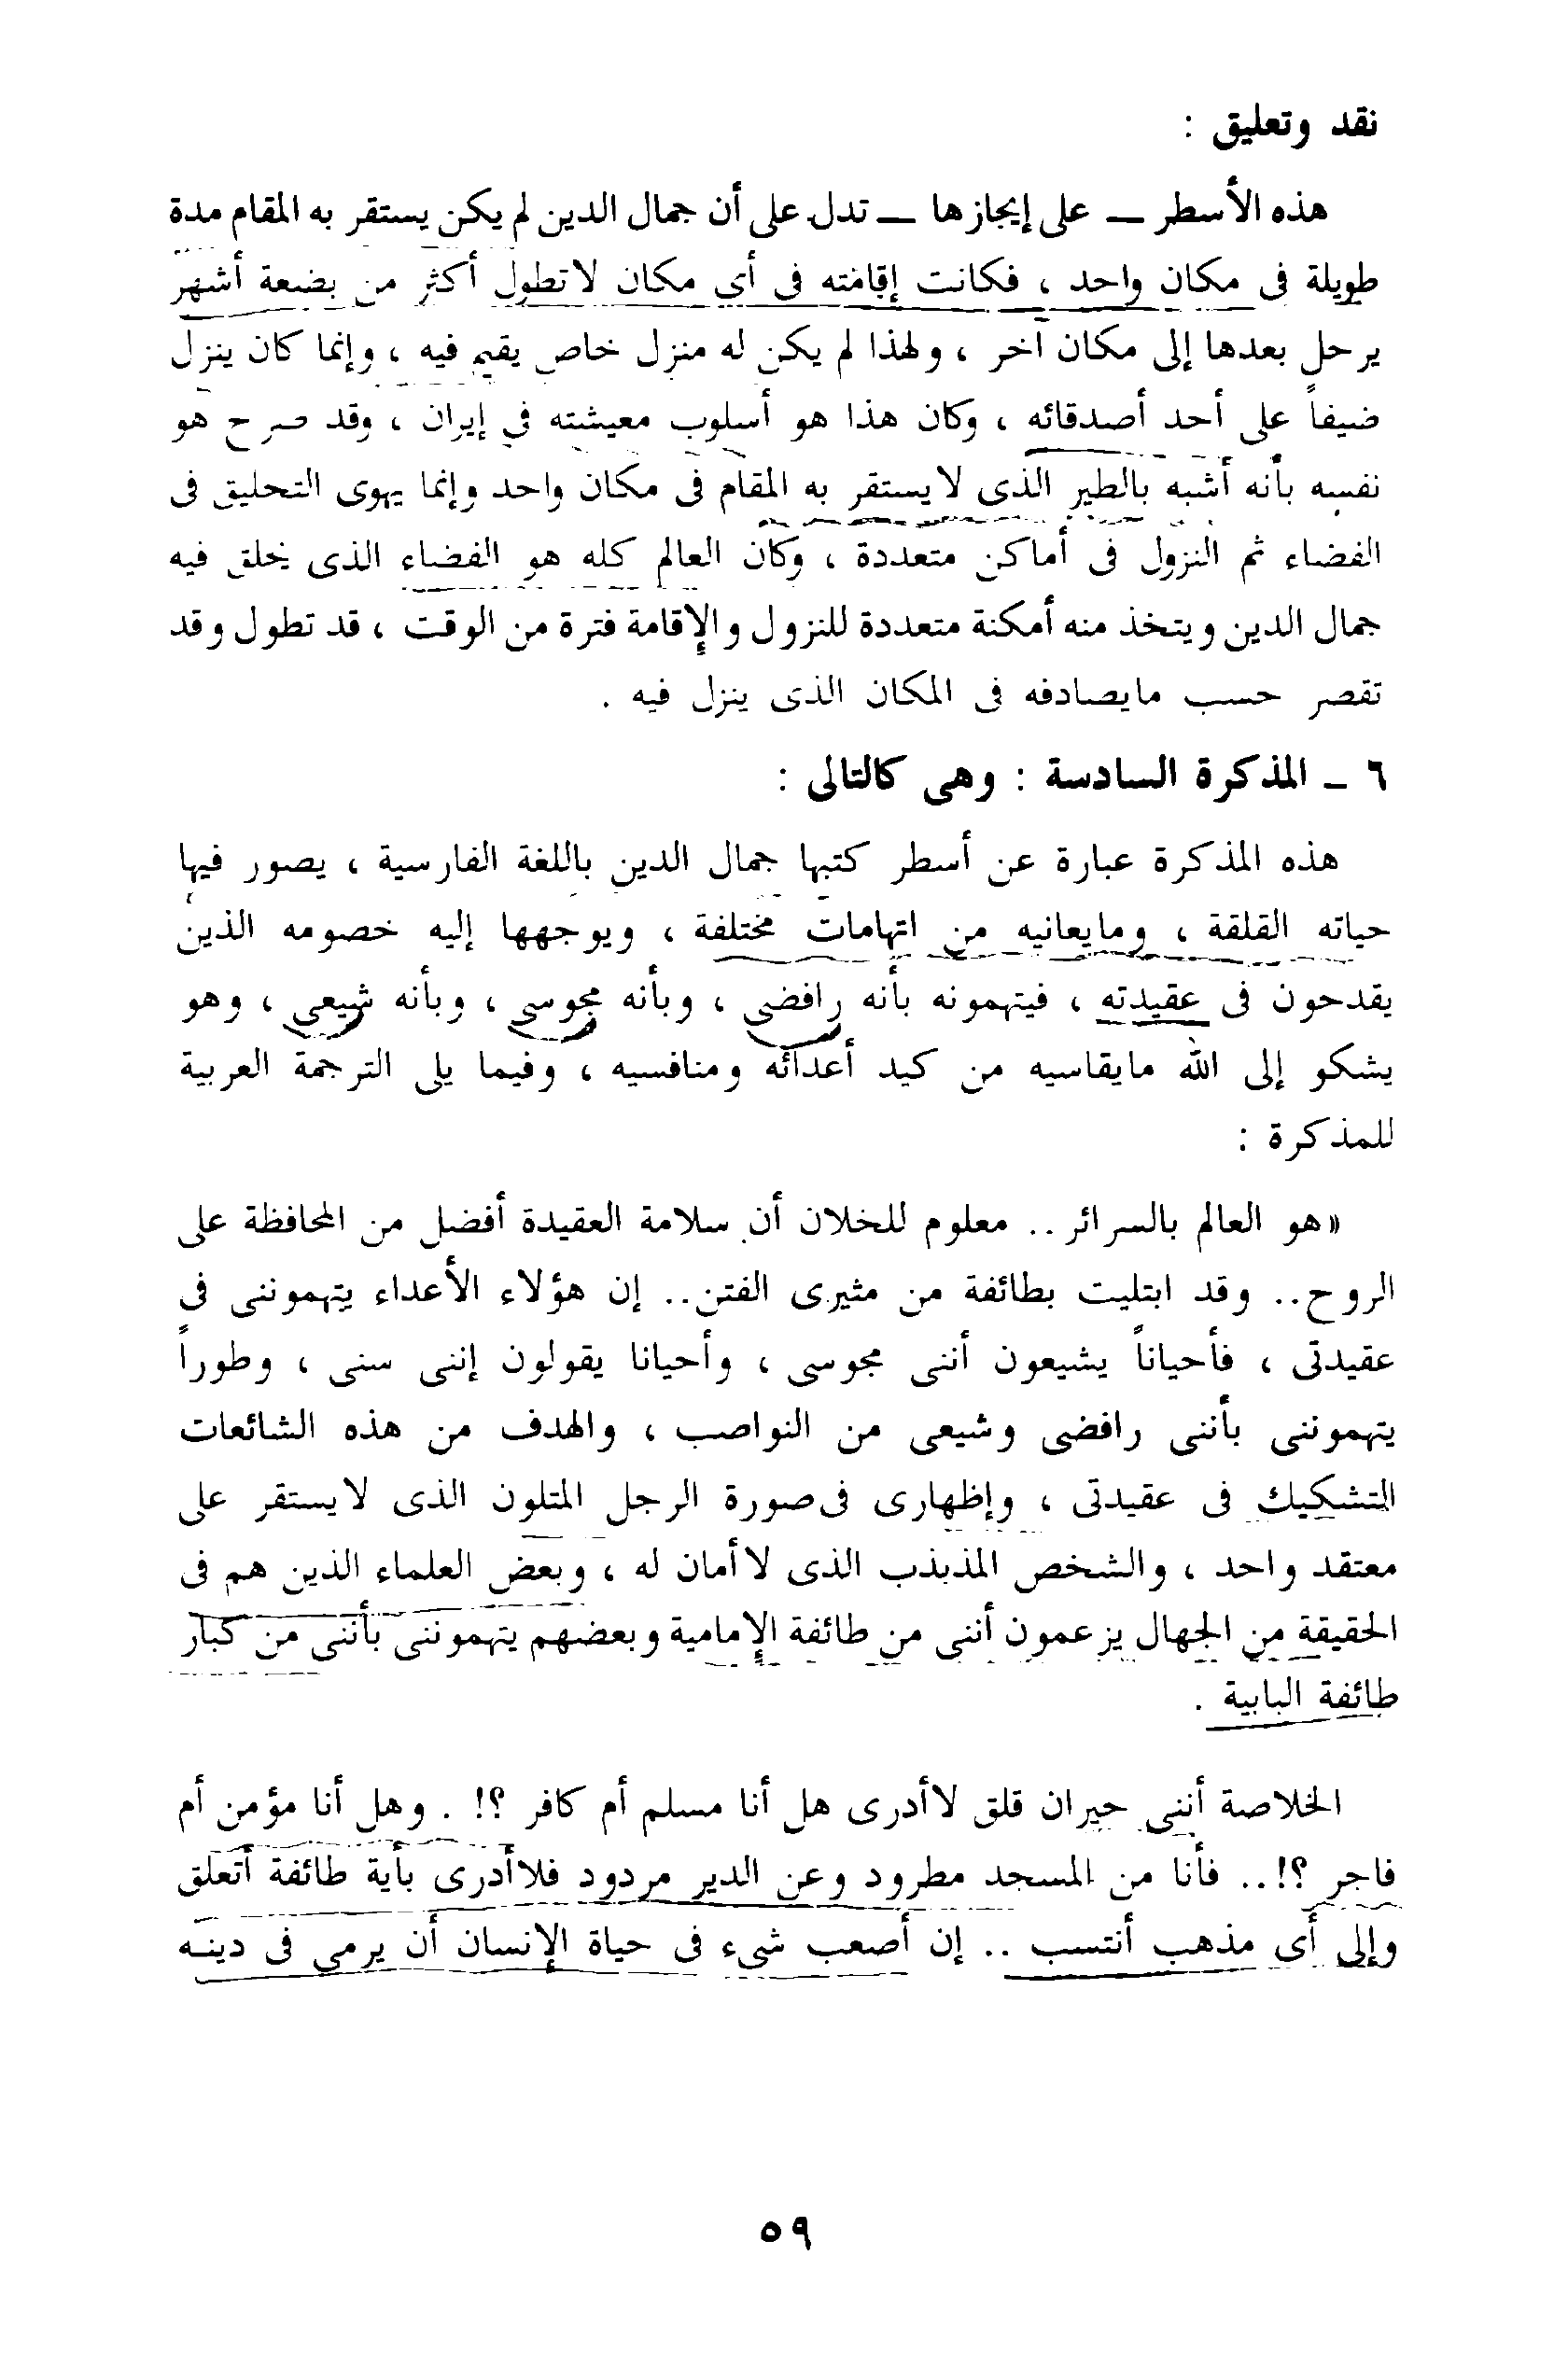 نقد وتعليق :
هذه الأسطر — على إيجازها — تدل على أن جمال الدين لم يكن يستقر به المقام مدة
طويلة فى مكان واحد ، فكانت إقامته فى أى مكان لاتطول أكثر من بضعة أشهر
يرحل بعدها إلى مكان آخر ، ولهذا لم يكن له منزل خاص يقيم فيه ، وإنما كان ينزل
ضيفاً على أحد أصدقائه ، وكان هذا هو أسلوب معيشته في إيران ، وقد صرح هو
نفسه بأنه أشبه بالطير الذى لايستقر به المقام فى مكان واحد وإنما يهوى التحليق فى
الفضاء ثم النزول فى أماكن متعددة ، وكان العالم كله هو الفضاء الذى يحلق فيه
جمال الدين ويتخذ منه أمكنة متعددة للنزول والإقامة فترة من الوقت ، قد تطول وقد
تقصر حسب مايصادفه فى المكان الذى ينزل فيه .
٦ - المذكرة السادسة : وهى كالتالى :
هذه المذكرة عبارة عن أسطر كتبها جمال الدين باللغة الفارسية ، يصور فيها
حياته القلقة ، ومايعانيه من اتهامات مختلفة ، ويوجهها إليه خصومه الذين
يقدحون فى عقيدته ، فيتهمونه بأنه رافضى ، وبأنه مجوسى ، وبأنه شيعى ، وهو
يشكو إلى الله مايقاسيه من كيد أعدائه ومنافسيه ، وفيما يلى الترجمة العربية
للمذكرة :
«هو العالم بالسرائر .. معلوم للخلان أن سلامة العقيدة أفضل من المحافظة على
الروح.. وقد ابتليت بطائفة من مثيرى الفتن.. إن هؤلاء الأعداء يتهموننى فى
عقيدتى ، فأحياناً يشيعون أننى مجوسى ، وأحيانا يقولون إننى سنى ، وطوراً
يتهموننى بأننى رافضى وشيعى من النواصب ، والهدف من هذه الشائعات
التشكيك فى عقيدتى ، وإظهارى فى صورة الرجل المتلون الذى لايستقر على
معتقد واحد ، والشخص المذبذب الذى لاأمان له ، وبعض العلماء الذين هم فى
الحقيقة من الجهال يزعمون أننى من طائفة الإمامية وبعضهم يتهموننى بأننى من كبار
طائفة البابية .
الخلاصة أننى حيران قلق لاأدرى هل أنا مسلم أم كافر ؟! . وهل أنا مؤمن أم
فاجر ؟!.. فأنا من المسجد مطرود وعن الدير مردود فلاأدرى بأية طائفة أتعلق
وإلى أى مذهب أنتسب .. إن أصعب شىء فى حياة الإنسان أن يرمى فى دينه
٥٩